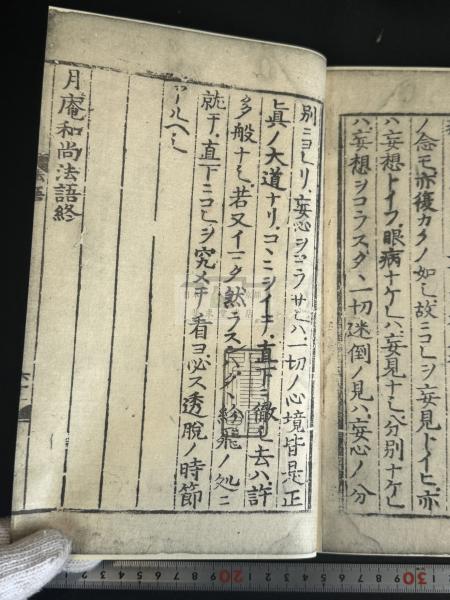 ノ念モ亦復カクノ如シ故ニコレヲ妄見トイヒ亦
ハ妄想トイフ眼病ナケレハ妄見ナシ分別ナケレ
ハ妄想ヲコラスタヽ一切迷倒ノ見ハ妄心ノ分
別ニヨレリ妄心ヲコラサレハ一切ノ心境皆是正
眞ノ大道ナリコヽニシイテ直下ニ徹シ去ハ許
多般ナシ若又イマタ然ラスタヽ紛飛ノ処ニ
就テ直下ニコレヲ究メテ看ヨ必ス透脱ノ時節
アルヘシ
月庵和尚法語終
20
30